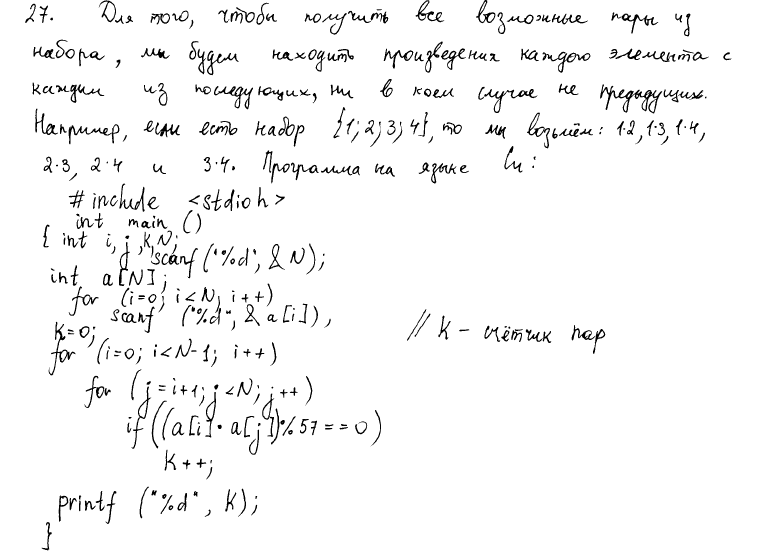 27. Для того, чтобы получить все возможные пары из
набора, мы будем находить произведения каждого элемента с
каждым из последующих, ни в коем случае не предыдущих.
Например, если есть набор {1; 2; 3; 4}, то мы возьмём: 1·2, 1·3, 1·4,
2·3, 2·4 и 3·4. Программа на языке Си:
# include <stdio h>
int main ()
{ int i, j, k, N;
scanf ("%d", & N);
int a[N];
for (i=0; i<N; i++)
scanf ("%d", & a[i]),
k=0; // k – счётчик пар
for (i=0; i<N-1; i++)
for (j=i+1; j<N; j++)
if ((a[i] · a[j])%57 == 0)
k++;
printf ("%d", k);
}